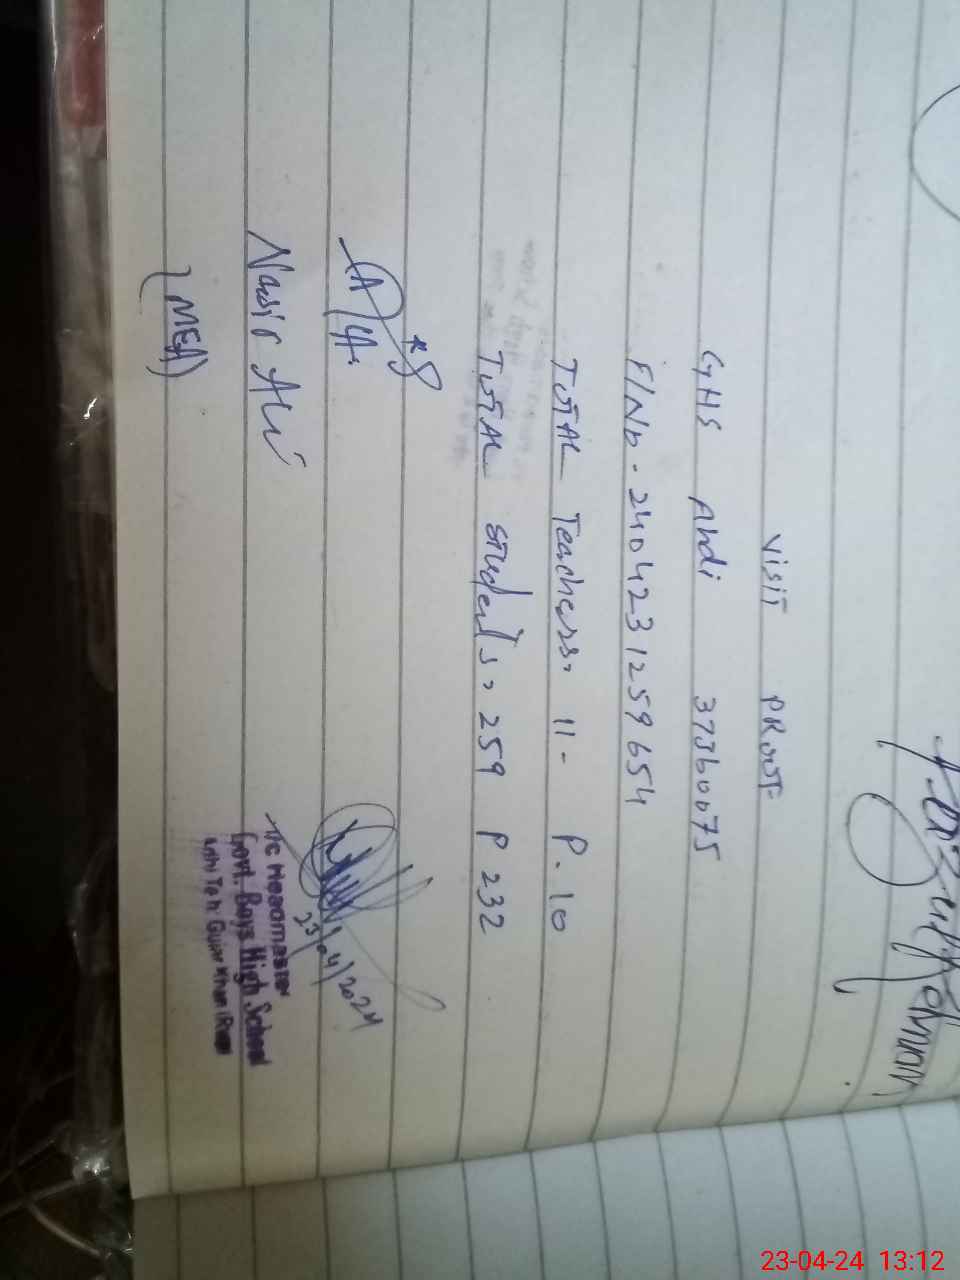 Visit PRooT-
GHS Ahdi 37360075
F/No - 240423 1259654
ToTAL Teachers. 11- P. 10
ToTAL students, 259 P 232
Nasir Ali
(MEA)
23/04/2024
I/C Headmaster
Govt. Boys High School
Ahdi Teh: Gujar Khan (Rwp)
23-04-24 13:12